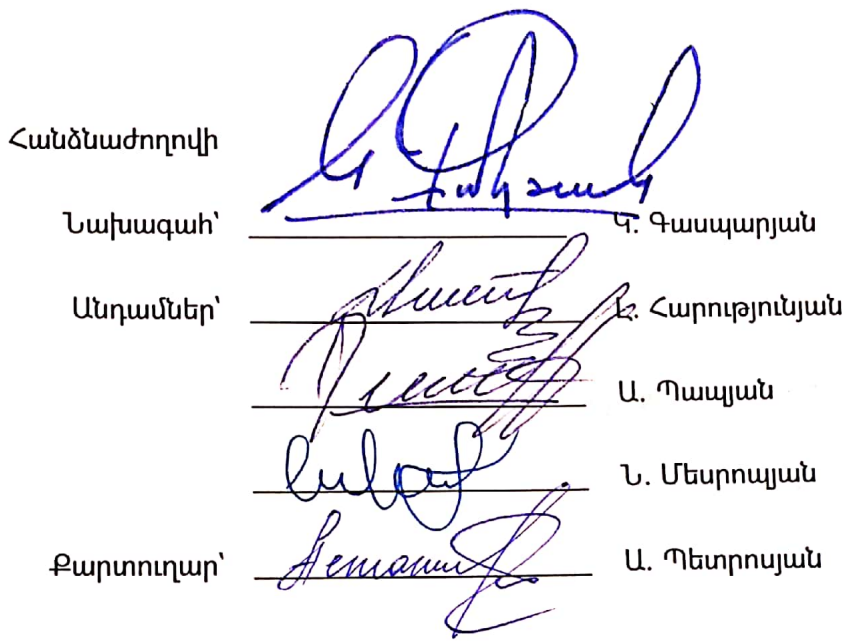 Հանձնաժողովի
Նախագահ՝ Կ. Գասպարյան
Անդամներ՝ Հարությունյան
Ա. Պապյան
Ն. Մեսրոպյան
Քարտուղար՝ Ա. Պետրոսյան